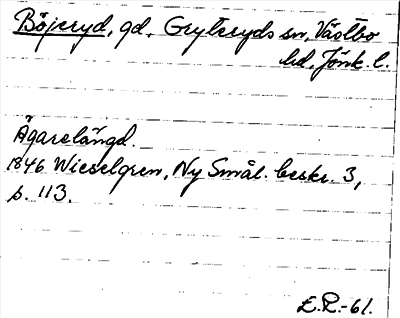 Böjeryd, gd, Gryteryds sn, Västbo
hd, Jönk. l.
Ägarelängd.
1846 Wieselgren, Ny Smål. beskr. 3,
s. 113.
E.P.-61.